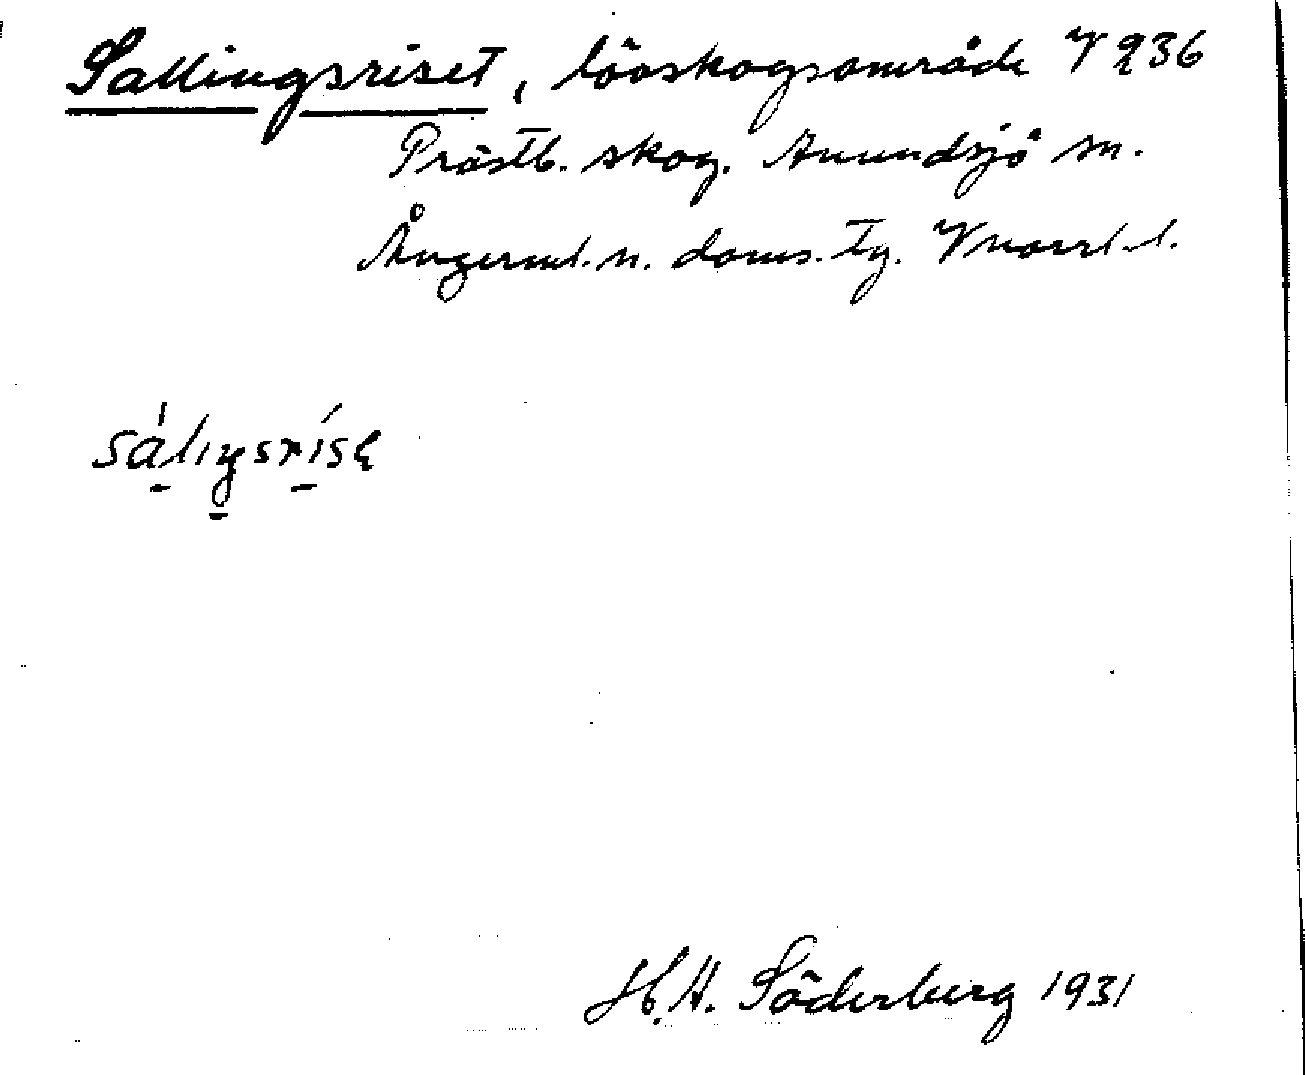 Sallingsriset, lövskogsområde V 236
Prästb. skog. Anundsjö sn.
Ångerml. n. doms. tg. Vnorrl. l.
sálıŋsrísɛ
H. H. Söderberg 1931